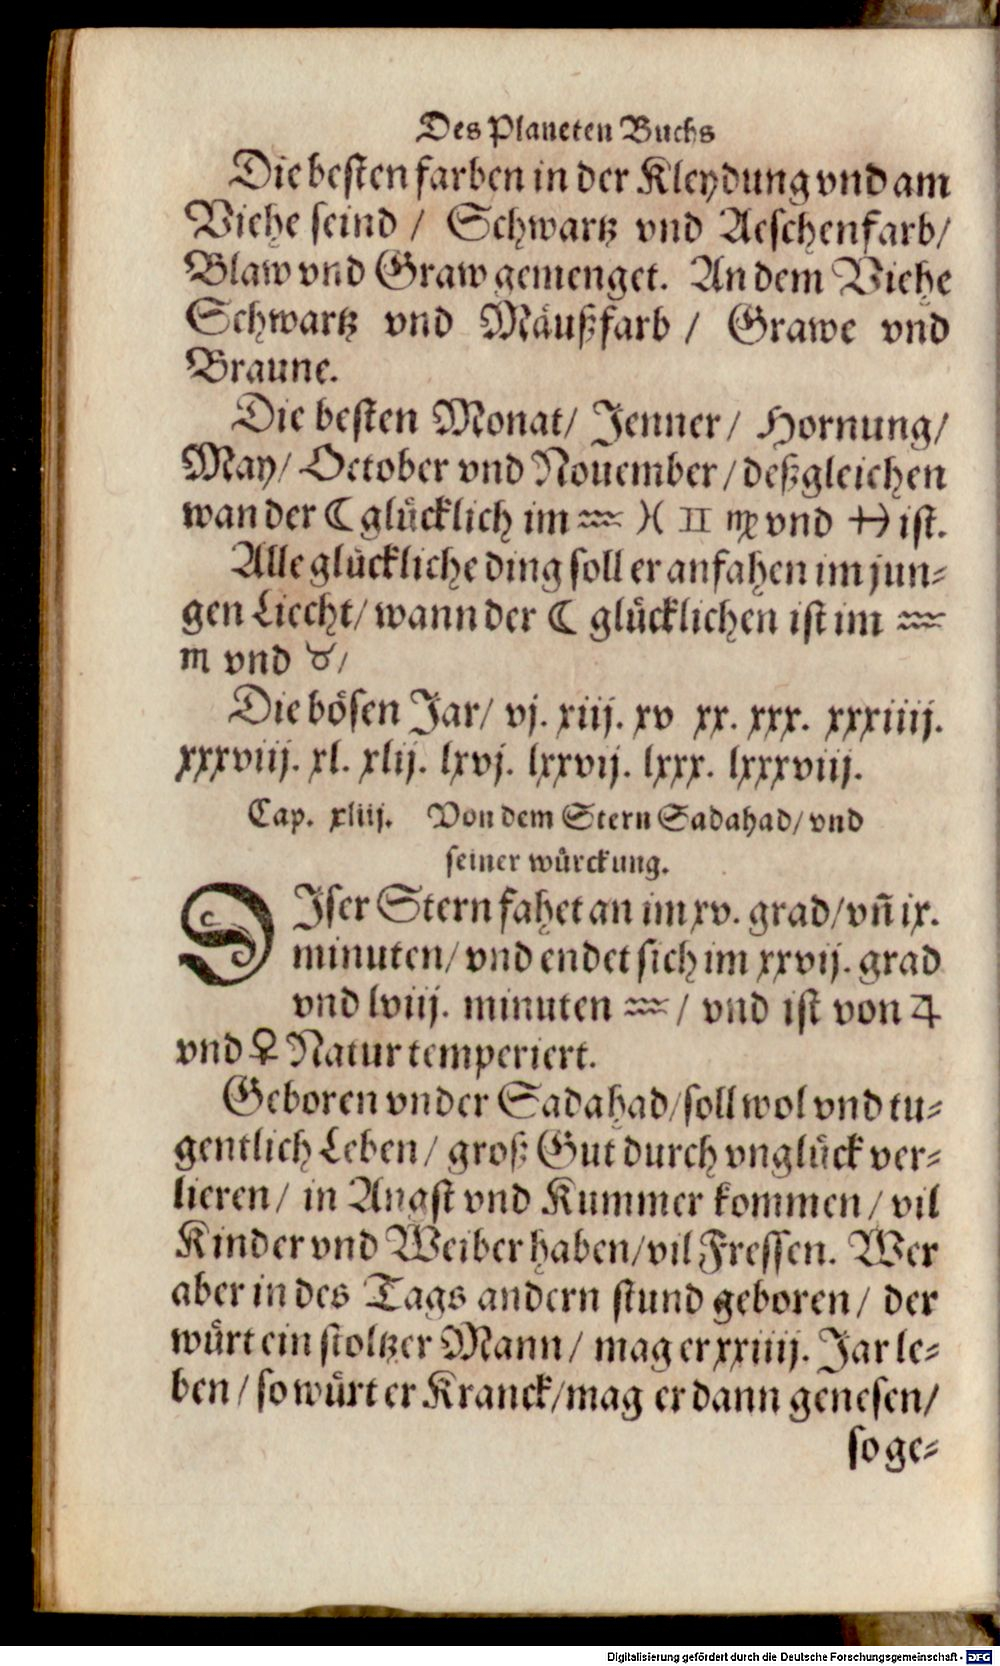 Des Planeten Buchs
Die besten farben in der Kleydung vnd am
Viehe seind / Schwartz vnd Aeschenfarb/
Blaw vnd Graw gemenget. An dem Viehe
Schwartz vnd Mäußfarb / Grawe vnd
Braune.
Die besten Monat/ Jenner/ Hornung/
May/ October vnd Nouember/ deßgleichen
wan der ☾ glücklich im ♒ ♓ ♊ ♍ vnd ♐ ist.
Alle glückliche ding soll er anfahen im jun-
gen Liecht/ wann der ☾ glücklichen ist im ♒
♏ vnd ♉/
Die bösen Jar/ vj. xiij. xv xx. xxx. xxxiiij.
xxxviij. xl. xlij. lxvj. lxxvij. lxxx. lxxxviij.
Cap. xliij. Von dem Stern Sadahad/ vnd
seiner würckung.
DIser Stern fahet an im xv. grad/ vñ ix.
minuten/ vnd endet sich im xxvij. grad
vnd lviij. minuten ♒ / vnd ist von ♃
vnd ♀ Natur temperiert.
Geboren vnder Sadahad/ soll wol vnd tu-
gentlich Leben/ groß Gut durch vnglück ver-
lieren/ in Angst vnd Kummer kommen/ vil
Kinder vnd Weiber haben/ vil Fressen. Wer
aber in des Tags andern stund geboren/ der
würt ein stoltzer Mann/ mag er xxiiij. Jar le-
ben/ so würt er Kranck/ mag er dann genesen/
so ge-
Digitalisierung gefördert durch die Deutsche Forschungsgemeinschaft - DFG